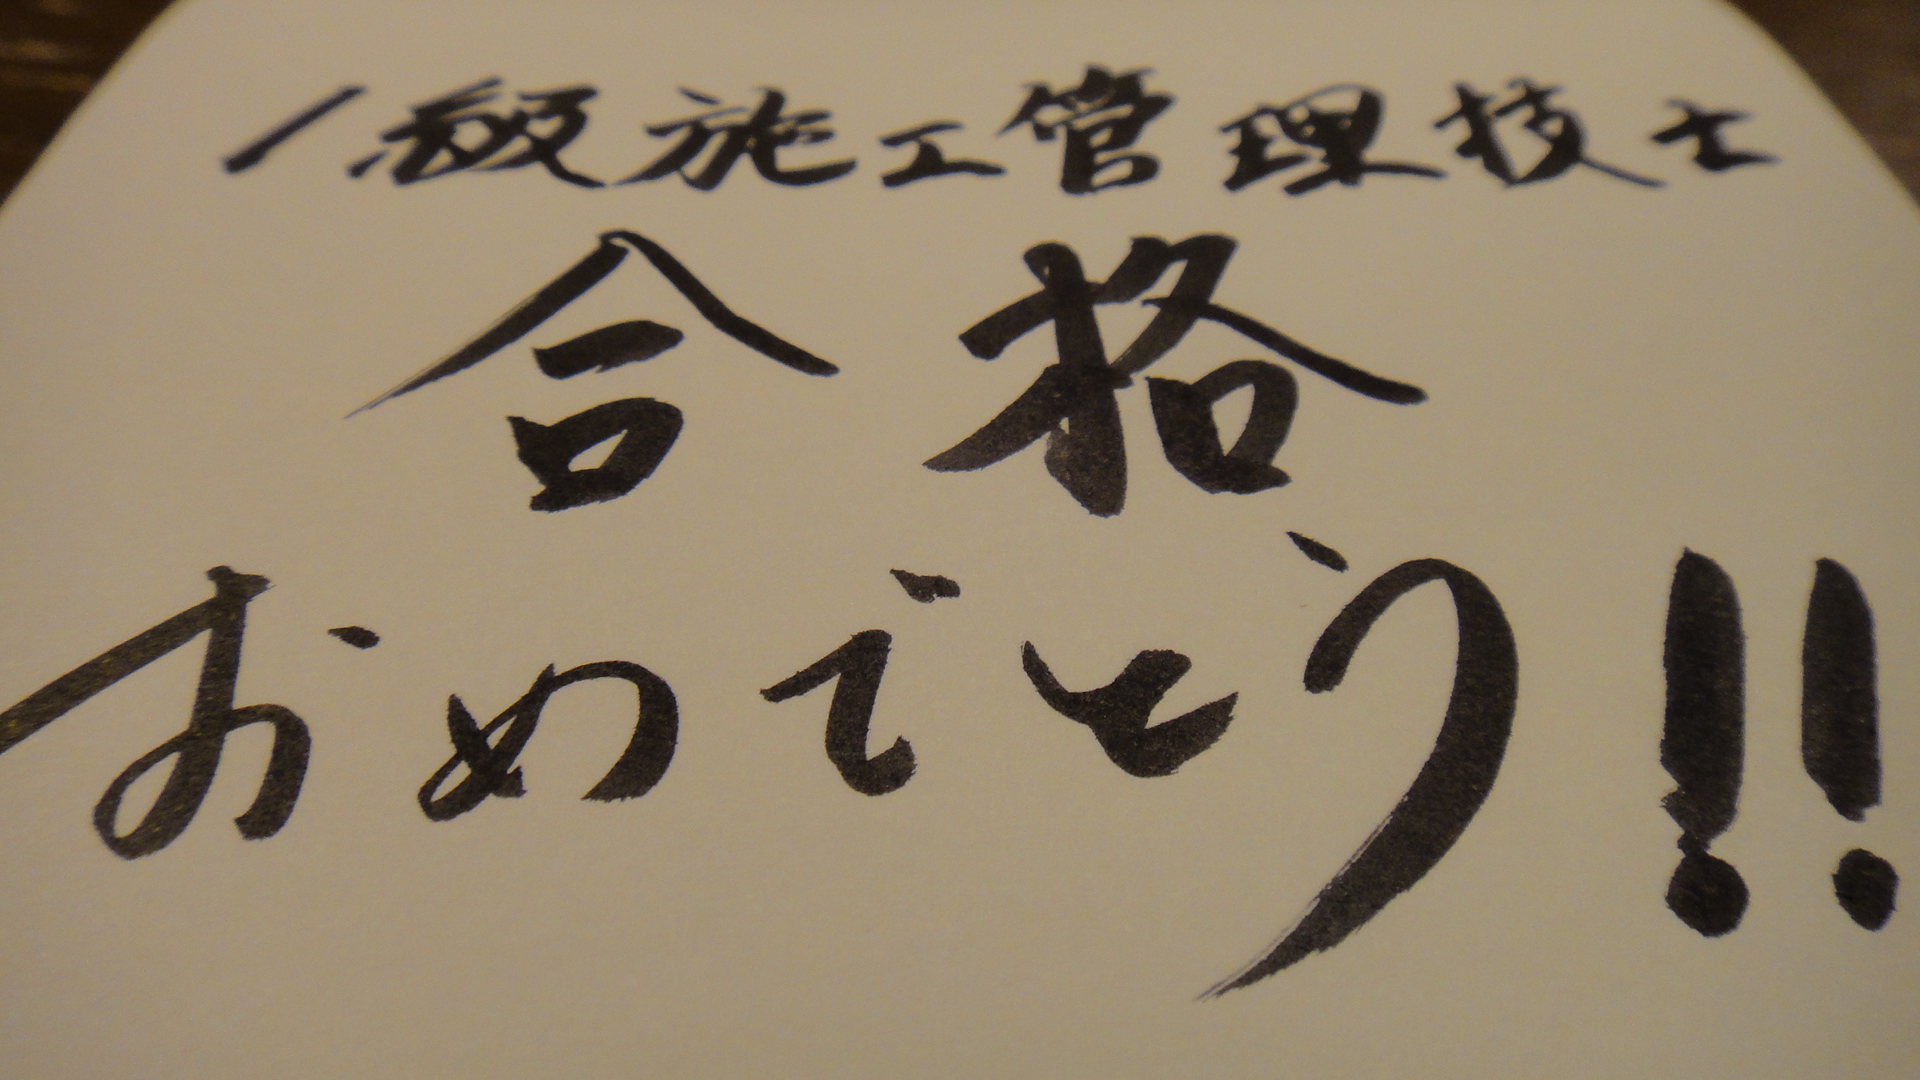 1級施工管理技士
合格
おめでとう!!